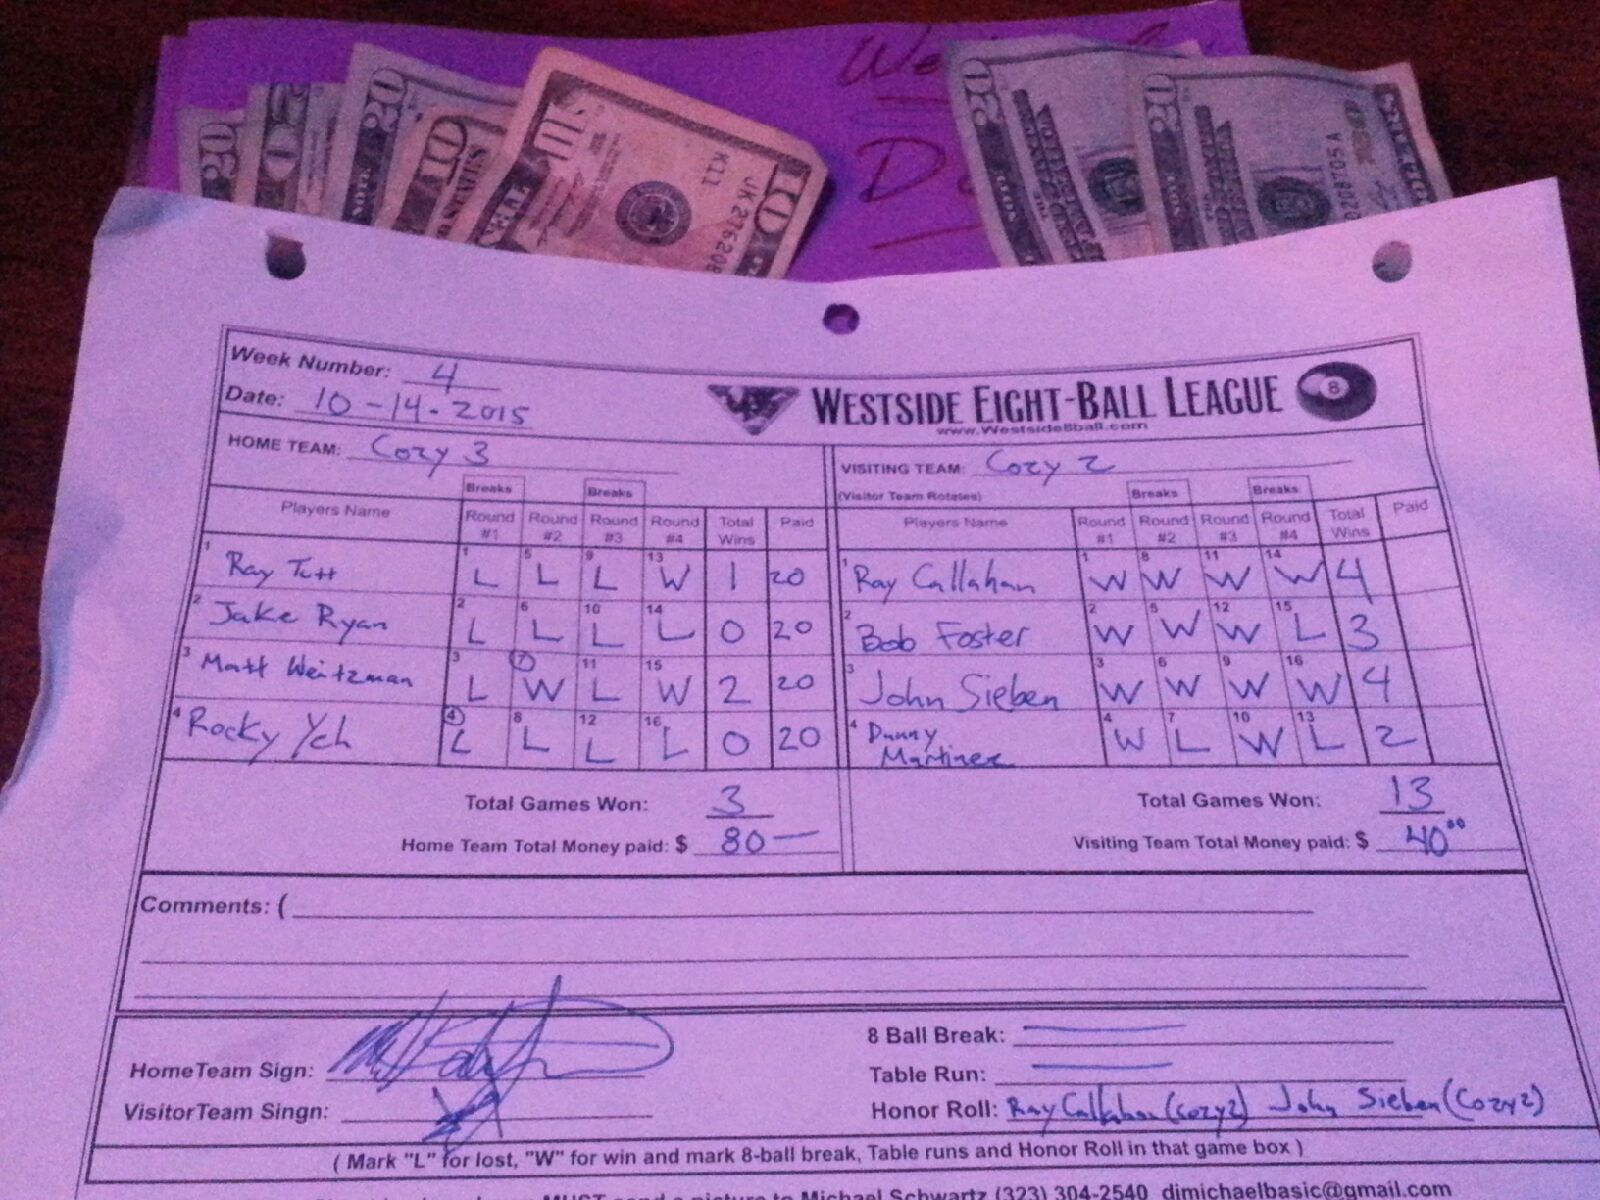 We
D
20
20
10
10
10
K11
JK276208
20
20
0228705A
Week Number: 4
Date: 10-14-2015
WESTSIDE EIGHT-BALL LEAGUE 8
www.Westside8ball.com
HOME TEAM: Cozy 3
VISITING TEAM: Cozy 2
(Visitor Team Rotates)
Breaks Breaks Breaks Breaks
Players Name Round #1 Round #2 Round #3 Round #4 Total Wins Paid Players Name Round #1 Round #2 Round #3 Round #4 Total Wins Paid
1 Ray Tutt 1 L 5 L 9 L 13 W 1 20 1 Ray Callahan 1 W 8 W 11 W 14 W 4
2 Jake Ryan 2 L 6 L 10 L 14 L 0 20 2 Bob Foster 2 W 5 W 12 W 15 L 3
3 Matt Weitzman 3 L 7 W 11 L 15 W 2 20 3 John Sieben 3 W 6 W 9 W 16 W 4
4 Rocky Yeh 4 L 8 L 12 L 16 L 0 20 4 Danny Martinez 4 W 7 L 10 W 13 L 2
Total Games Won: 3 Total Games Won: 13
Home Team Total Money paid: $ 80— Visiting Team Total Money paid: $ 40⁰⁰
Comments: (
HomeTeam Sign:
VisitorTeam Singn:
8 Ball Break: —
Table Run: —
Honor Roll: Ray Callahan (Cozy 2) John Sieben (Cozy 2)
( Mark "L" for lost, "W" for win and mark 8-ball break, Table runs and Honor Roll in that game box )
MUST send a picture to Michael Schwartz (323) 304-2540 dimichaelbasic@gmail.com